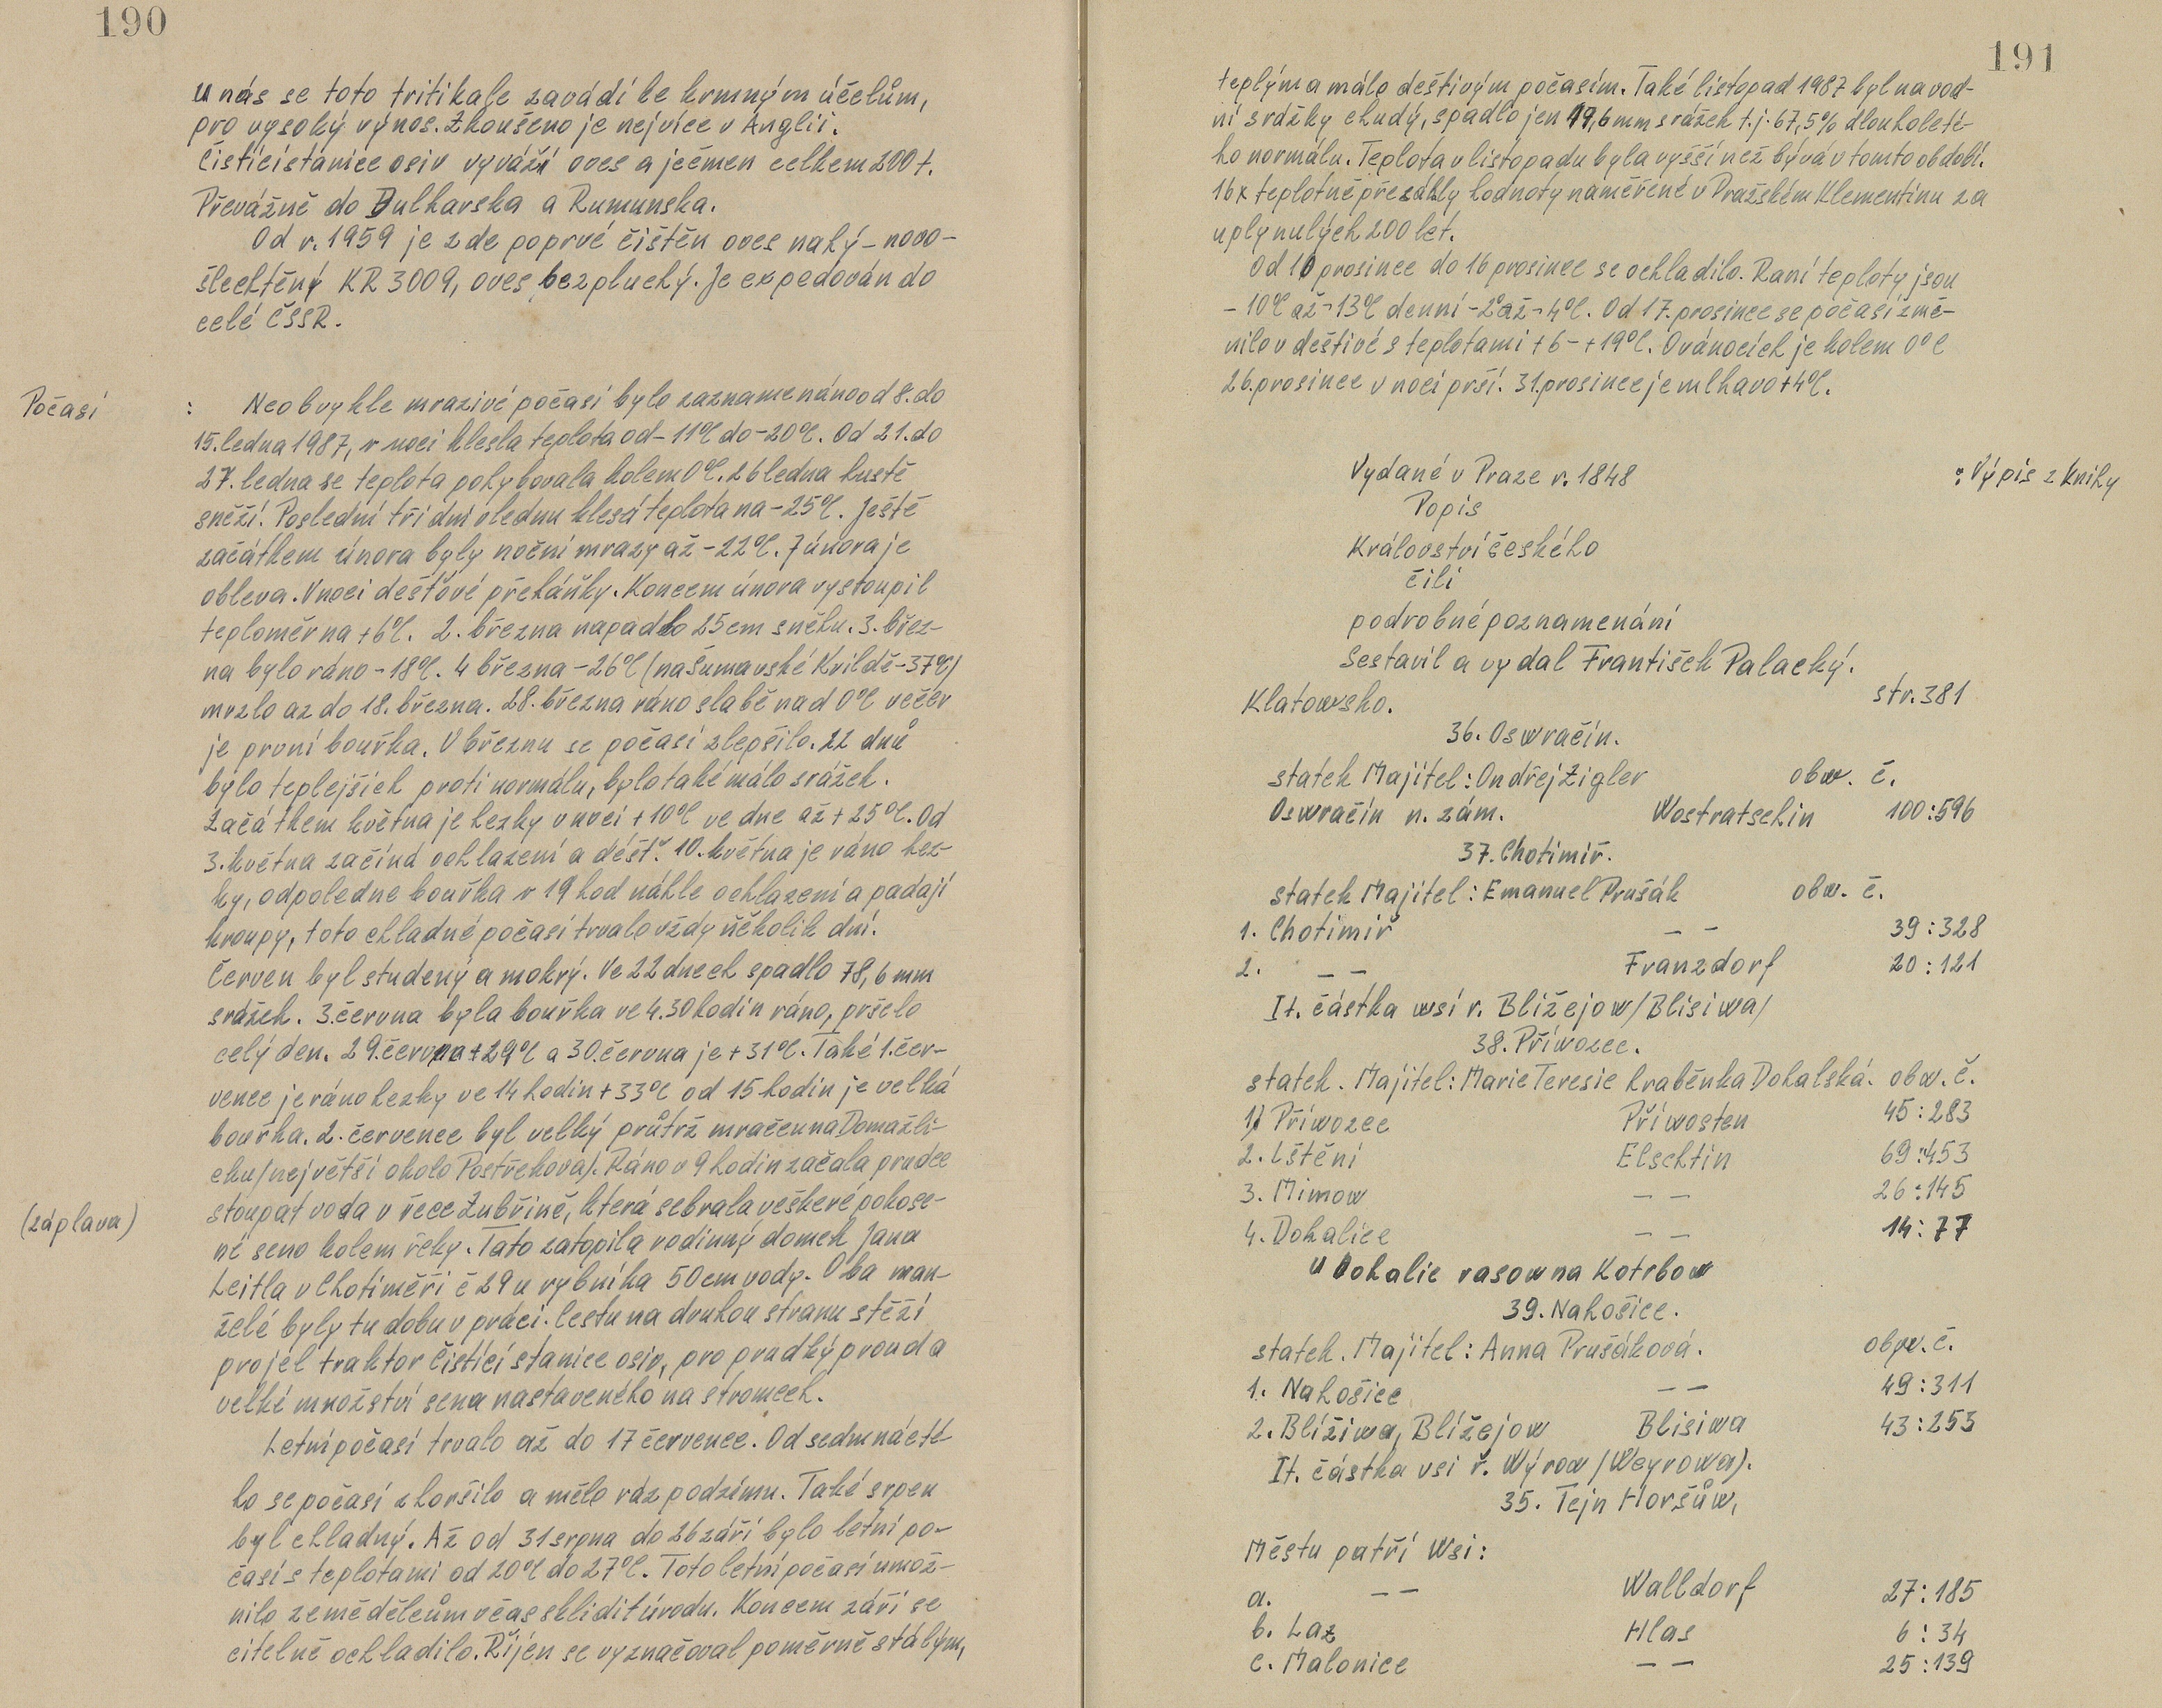 190
u nás se toto tritikale zavádí ke krmným účelům,
pro vysoký výnos. Zkoušeno je nejvíce v Anglii.
Čistící stanice osiv vyváží oves a ječmen celkem 200 t.
Převážně do Bulharska a Rumunska.
Od r. 1959 je zde poprvé čištěn oves nahý – novo-
šlechtěný KR 3009, oves bezpluchý. Je expedován do
celé ČSSR.
Počasí : Neobvykle mrazivé počasí bylo zaznamenáno od 8. do
15. ledna 1987, v noci klesla teplota od -11°C do -20°C. Od 21. do
27. ledna se teplota pohybovala kolem 0°C. 26 ledna hustě
sněží. Poslední tři dni v lednu klesá teplota na -25°C. Ještě
začátkem února byly noční mrazy až -22°C. 7 února je
obleva. V noci dešťové přeháňky. Koncem února vystoupil
teploměr na +6°C. 2. března napadlo 25 cm sněhu. 3. břez-
na bylo ráno -18°C. 4 března -26°C (na Šumavské Kvildě -37°C)
mrzlo az do 18. března. 28. března ráno slabě nad 0°C večer
je první bouřka. V březnu se počasí zlepšilo. 22 dnů
bylo teplejších proti normálu, bylo také málo srážek.
Začátkem května je hezky v noci +10°C ve dne až +25°C. Od
3. května začíná ochlazení a déšť. 10. května je ráno hez-
ky, odpoledne bouřka v 19 hod náhle ochlazení a padají
kroupy, toto chladné počasí trvalo vždy několik dní.
Červen byl studený a mokrý. Ve 22 dnech spadlo 78,6 mm
srážek. 3. června byla bouřka ve 4.30 hodin ráno, pršelo
celý den. 29. června +29°C a 30. června je +31°C. Také 1. čer-
vence je ráno hezky ve 14 hodin +33°C od 15 hodin je velká
bouřka. 2. července byl velký průtrž mračen na Domažli-
cku /největší okolo Postřekova/. Ráno v 9 hodin začala prudce
(záplava) stoupat voda v řece Zubřině, která sebrala veškeré pokose-
né seno kolem řeky. Tato zatopila rodinný domek Jana
Leitla v Chotiměři č 29 u rybníka 50 cm vody. Oba man-
želé byly tu dobu v práci. Cestu na druhou stranu stěží
projel traktor Čistící stanice osiv, pro prudký proud a
velké množství sena nastaveného na stromech.
Letní počasí trvalo až do 17 července. Od sedmnácté-
ho se počasí zhoršilo a mělo ráz podzimu. Také srpen
byl chladný. Až od 31 srpna do 26 září bylo letní po-
časí s teplotami od 20°C do 27°C. Toto letní počasí umož-
nilo zemědělcům včas sklidit úrodu. Koncem září se
citelně ochladilo. Říjen se vyznačoval poměrně stálým,
191
teplým a málo deštivým počasím. Také listopad 1987 byl na vod-
ní srážky chudý, spadlo jen 19,6 mm srážek t.j. 67,5% dlouholeté-
ho normálu. Teplota v listopadu byla vyšší než bývá v tomto období.
16x teplotně přesáhly hodnoty naměřené v Pražském Klementinu za
uplynulých 200 let.
Od 10 prosince do 16 prosince se ochladilo. Raní teploty jsou
-10°C až -13°C denní -2° až -4°C. Od 17. prosince se počasí změ-
nilo v deštivé s teplotami +6 - +19°C. O vánocích je kolem 0°C
26. prosince v noci prší. 31. prosince je mlhavo +4°C.
Vydané v Praze r. 1848 : Výpis z knihy
Popis
Království českého
čili
podrobné poznamenání
Sestavil a vydal František Palacký.
Klatowsko. str. 381
36. Oswračín.
statek Majitel: Ondřej Zigler obw. č.
Oswračín n. zám. Wostratschin 100:596
37. Chotimiř.
statek Majitel: Emanuel Prušák obw. č.
1. Chotimiř — — 39:328
2. — — Franzdorf 20:121
It. částka wsi r. Bližejow /Blisiwa/
38. Příwozec.
statek. Majitel: Marie Teresie hraběnka Dohalská. obw. č.
1) Příwozec Příwosten 45:283
2. Lštění Elschtin 69:453
3. Mimow — — 26:145
4. Dohalice — — 14:77
u Dohalic rasowna Kotrbow
39. Nahošice.
statek. Majitel: Anna Prušáková. obyw. č.
1. Nahošice — — 49:311
2. Blížiwa, Blížejow Blisiwa 43:253
It. částka vsi ř. Wýrow /Weyrowa).
35. Tejn Horšůw,
Městu patří Wsi:
a. — — Walldorf 27:185
b. Laz Hlas 6:34
c. Malonice — — 25:139